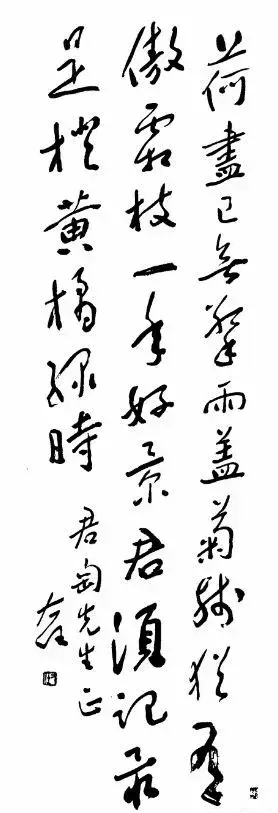 荷盡已無擎雨盖菊殘猶有
傲霜枝一年好景君須記最
是橙黃橘綠時
君匋先生正